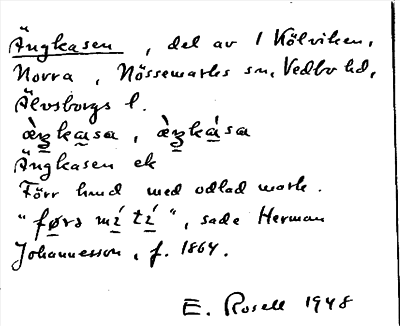 Ängkasen, del av 1 Kölviken,
Norra, Nössemarks sn, Vedbo hd,
Älvsborgs l.
Ängkasen ek
Förr hmd med odlad mark.
sade Herman
Johannesson, f. 1864.
E. Rosell 1948